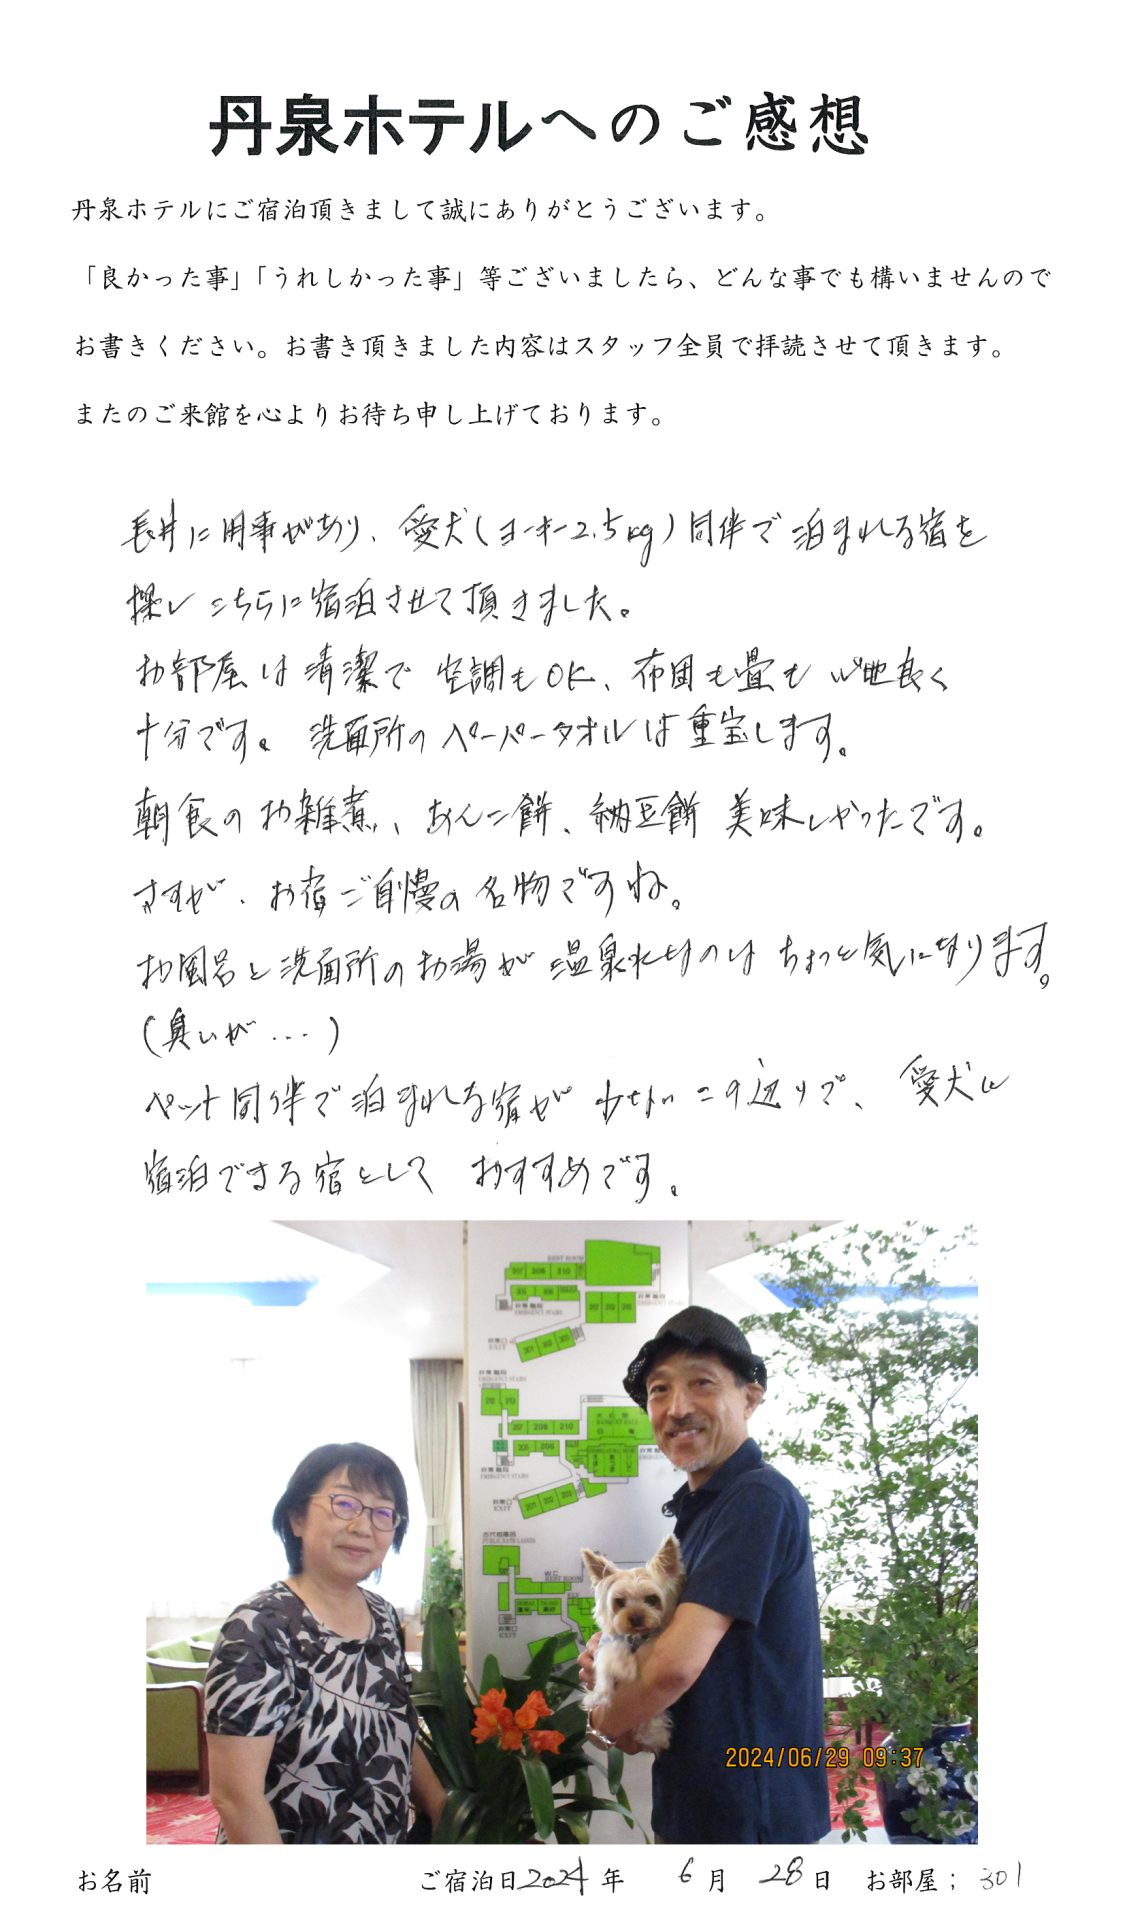 丹泉ホテルへのご感想
丹泉ホテルにご宿泊頂きまして誠にありがとうございます。
「良かった事」「うれしかった事」等ございましたら、どんな事でも構いませんので
お書きください。お書き頂きました内容はスタッフ全員で拝読させて頂きます。
またのご来館を心よりお待ち申し上げております。
長井に用事があり、愛犬(ヨーキー2.5kg)同伴で泊まれる宿を
探しこちらに宿泊させて頂きました。
お部屋は清潔で空調もOK、布団も畳も心地良く
十分です。洗面所のペーパータオルは重宝します。
朝食のお雑煮、あんこ餅、納豆餅美味しかったです。
さすが、お宿ご自慢の名物ですね。
お風呂と洗面所のお湯が温泉水なのはちょっと気になります。
(臭いが...)
ペット同伴で泊まれる宿が少ないこの辺りで、愛犬と
宿泊できる宿としておすすめです。
REST ROOM
307 308 310
305 306
非常階段
EMERGENCY STAIRS
非常口
EXIT
301 302 303
非常階段
EMERGENCY STAIRS
207 208 210
205 206
非常階段
EMERGENCY STAIRS
非常口
EXIT
201 202 203
PUBLIC BATH LADIES
W.C.
REST ROOM
非常口
EXIT
2024/06/29 09:37
お名前 ご宿泊日2024年 6月 28日 お部屋; 301